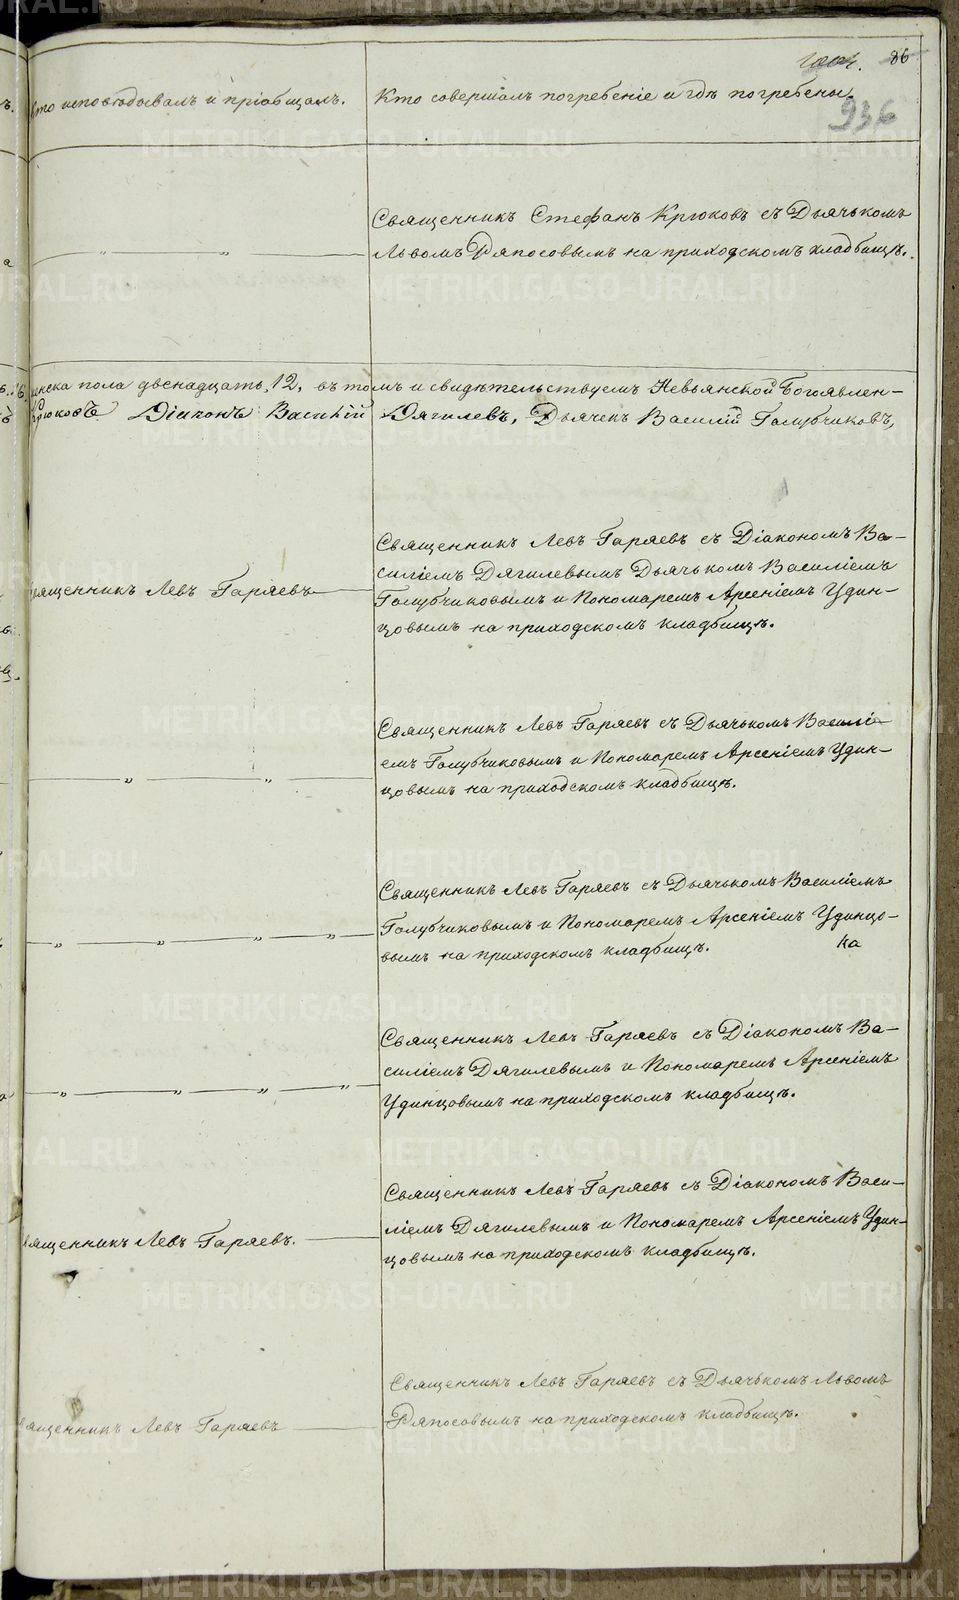 86
936
Кто исповѣдывалъ и пріобщалъ.
Кто совершалъ погребеніе и гдѣ погребены.
Священникъ Стефанъ Крюковъ съ Дьячькомъ
Львомъ Ряпосовымъ на приходскомъ кладбищѣ.
женска пола двенадцать, 12, въ томъ и свидѣтельствуемъ Невьянской Богоявлен-
Крюковъ Діаконъ Василій Дягилевъ, Дьячекъ Василій Голубчиковъ,
Священникъ Левъ Гаряевъ
Священникъ Левъ Гаряевъ съ Діакономъ Ва-
силіемъ Дягилевымъ Дьячькомъ Василіемъ
Голубчиковымъ и Пономаремъ Арсеніемъ Удин-
цовымъ на приходскомъ кладбищѣ.
Священникъ Левъ Гаряевъ съ Дьячькомъ Василі-
емъ Голубчиковымъ и Пономаремъ Арсеніемъ Удин-
цовымъ на приходскомъ кладбищѣ.
Священникъ Левъ Гаряевъ съ Дьячькомъ Василіемъ
Голубчиковымъ и Пономаремъ Арсеніемъ Удинцо-
вымъ на приходскомъ кладбищѣ.
на
Священникъ Левъ Гаряевъ съ Діакономъ Ва-
силіемъ Дягилевымъ и Пономаремъ Арсеніемъ
Удинцовымъ на приходскомъ кладбищѣ.
Священникъ Левъ Гаряевъ.
Священникъ Левъ Гаряевъ съ Діакономъ Васи-
ліемъ Дягилевымъ и Пономаремъ Арсеніемъ Удин-
цовымъ на приходскомъ кладбищѣ.
Священникъ Левъ Гаряевъ
Священникъ Левъ Гаряевъ съ Дьячькомъ Львомъ
Ряпосовымъ на приходскомъ кладбищѣ.
METRIKI.GASO-URAL.RU